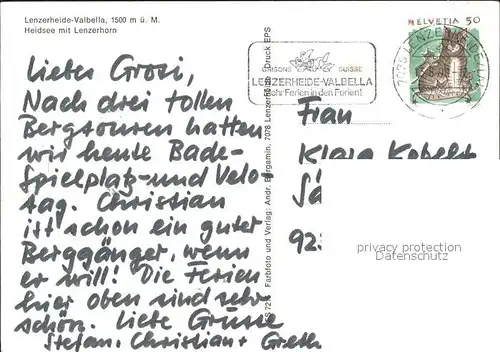 Lenzerheide-Valbella, 1500 m ü. M.
Heidsee mit Lenzerhorn
HELVETIA 50
SUISSE
LENZERHEIDE-VALBELLA
Ferien in den Ferien!
7078 Lenzerheide Druck EPS
Farbfoto und Verlag: Andr. Bergamin,
Lieber Grosi,
Nach drei tollen
Bergtouren hatten
wir heute Bade-
Spielplatz- und Velo-
tag. Christian
ist schon ein guter
Berggänger, wenn
er will! Die Ferien
hier oben sind sehr
schön. Liebe Grüsse
Stefan, Christian + Greth
Frau
Klara
privacy protection
Datenschutz